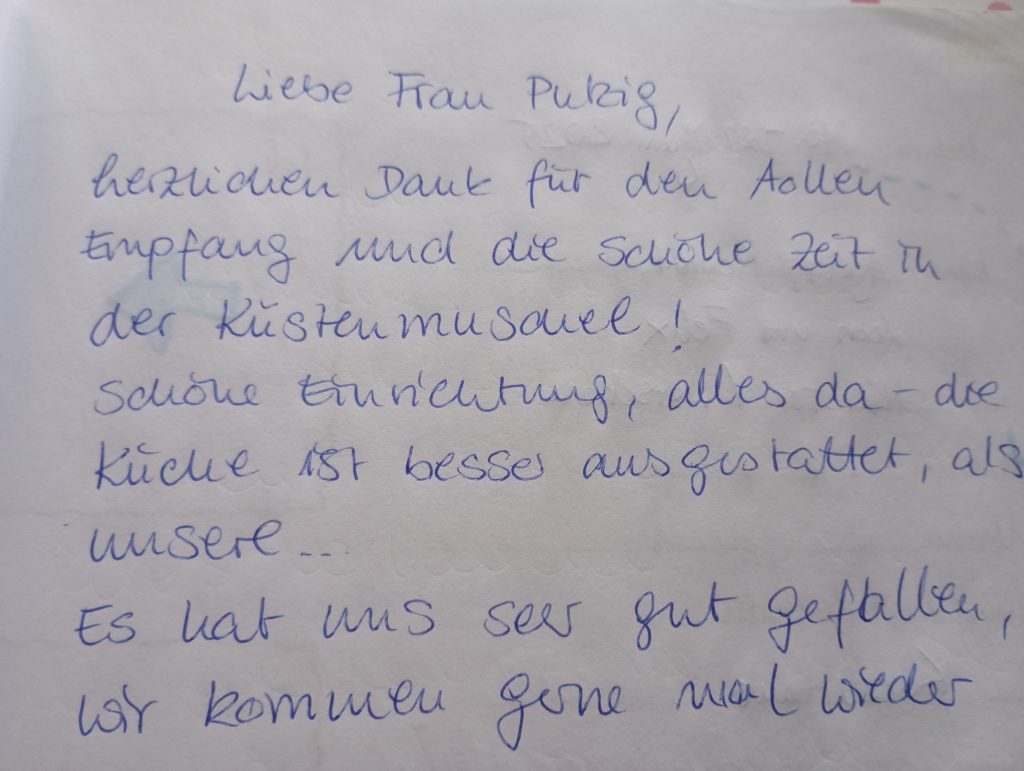 Liebe Frau Putzig,
herzlichen Dank für den tollen
Empfang und die schöne Zeit in
der Küstenmuschel!
Schöne Einrichtung, alles da - die
Küche ist besser ausgestattet, als
unsere..
Es hat uns sehr gut gefallen,
wir kommen gerne mal wieder